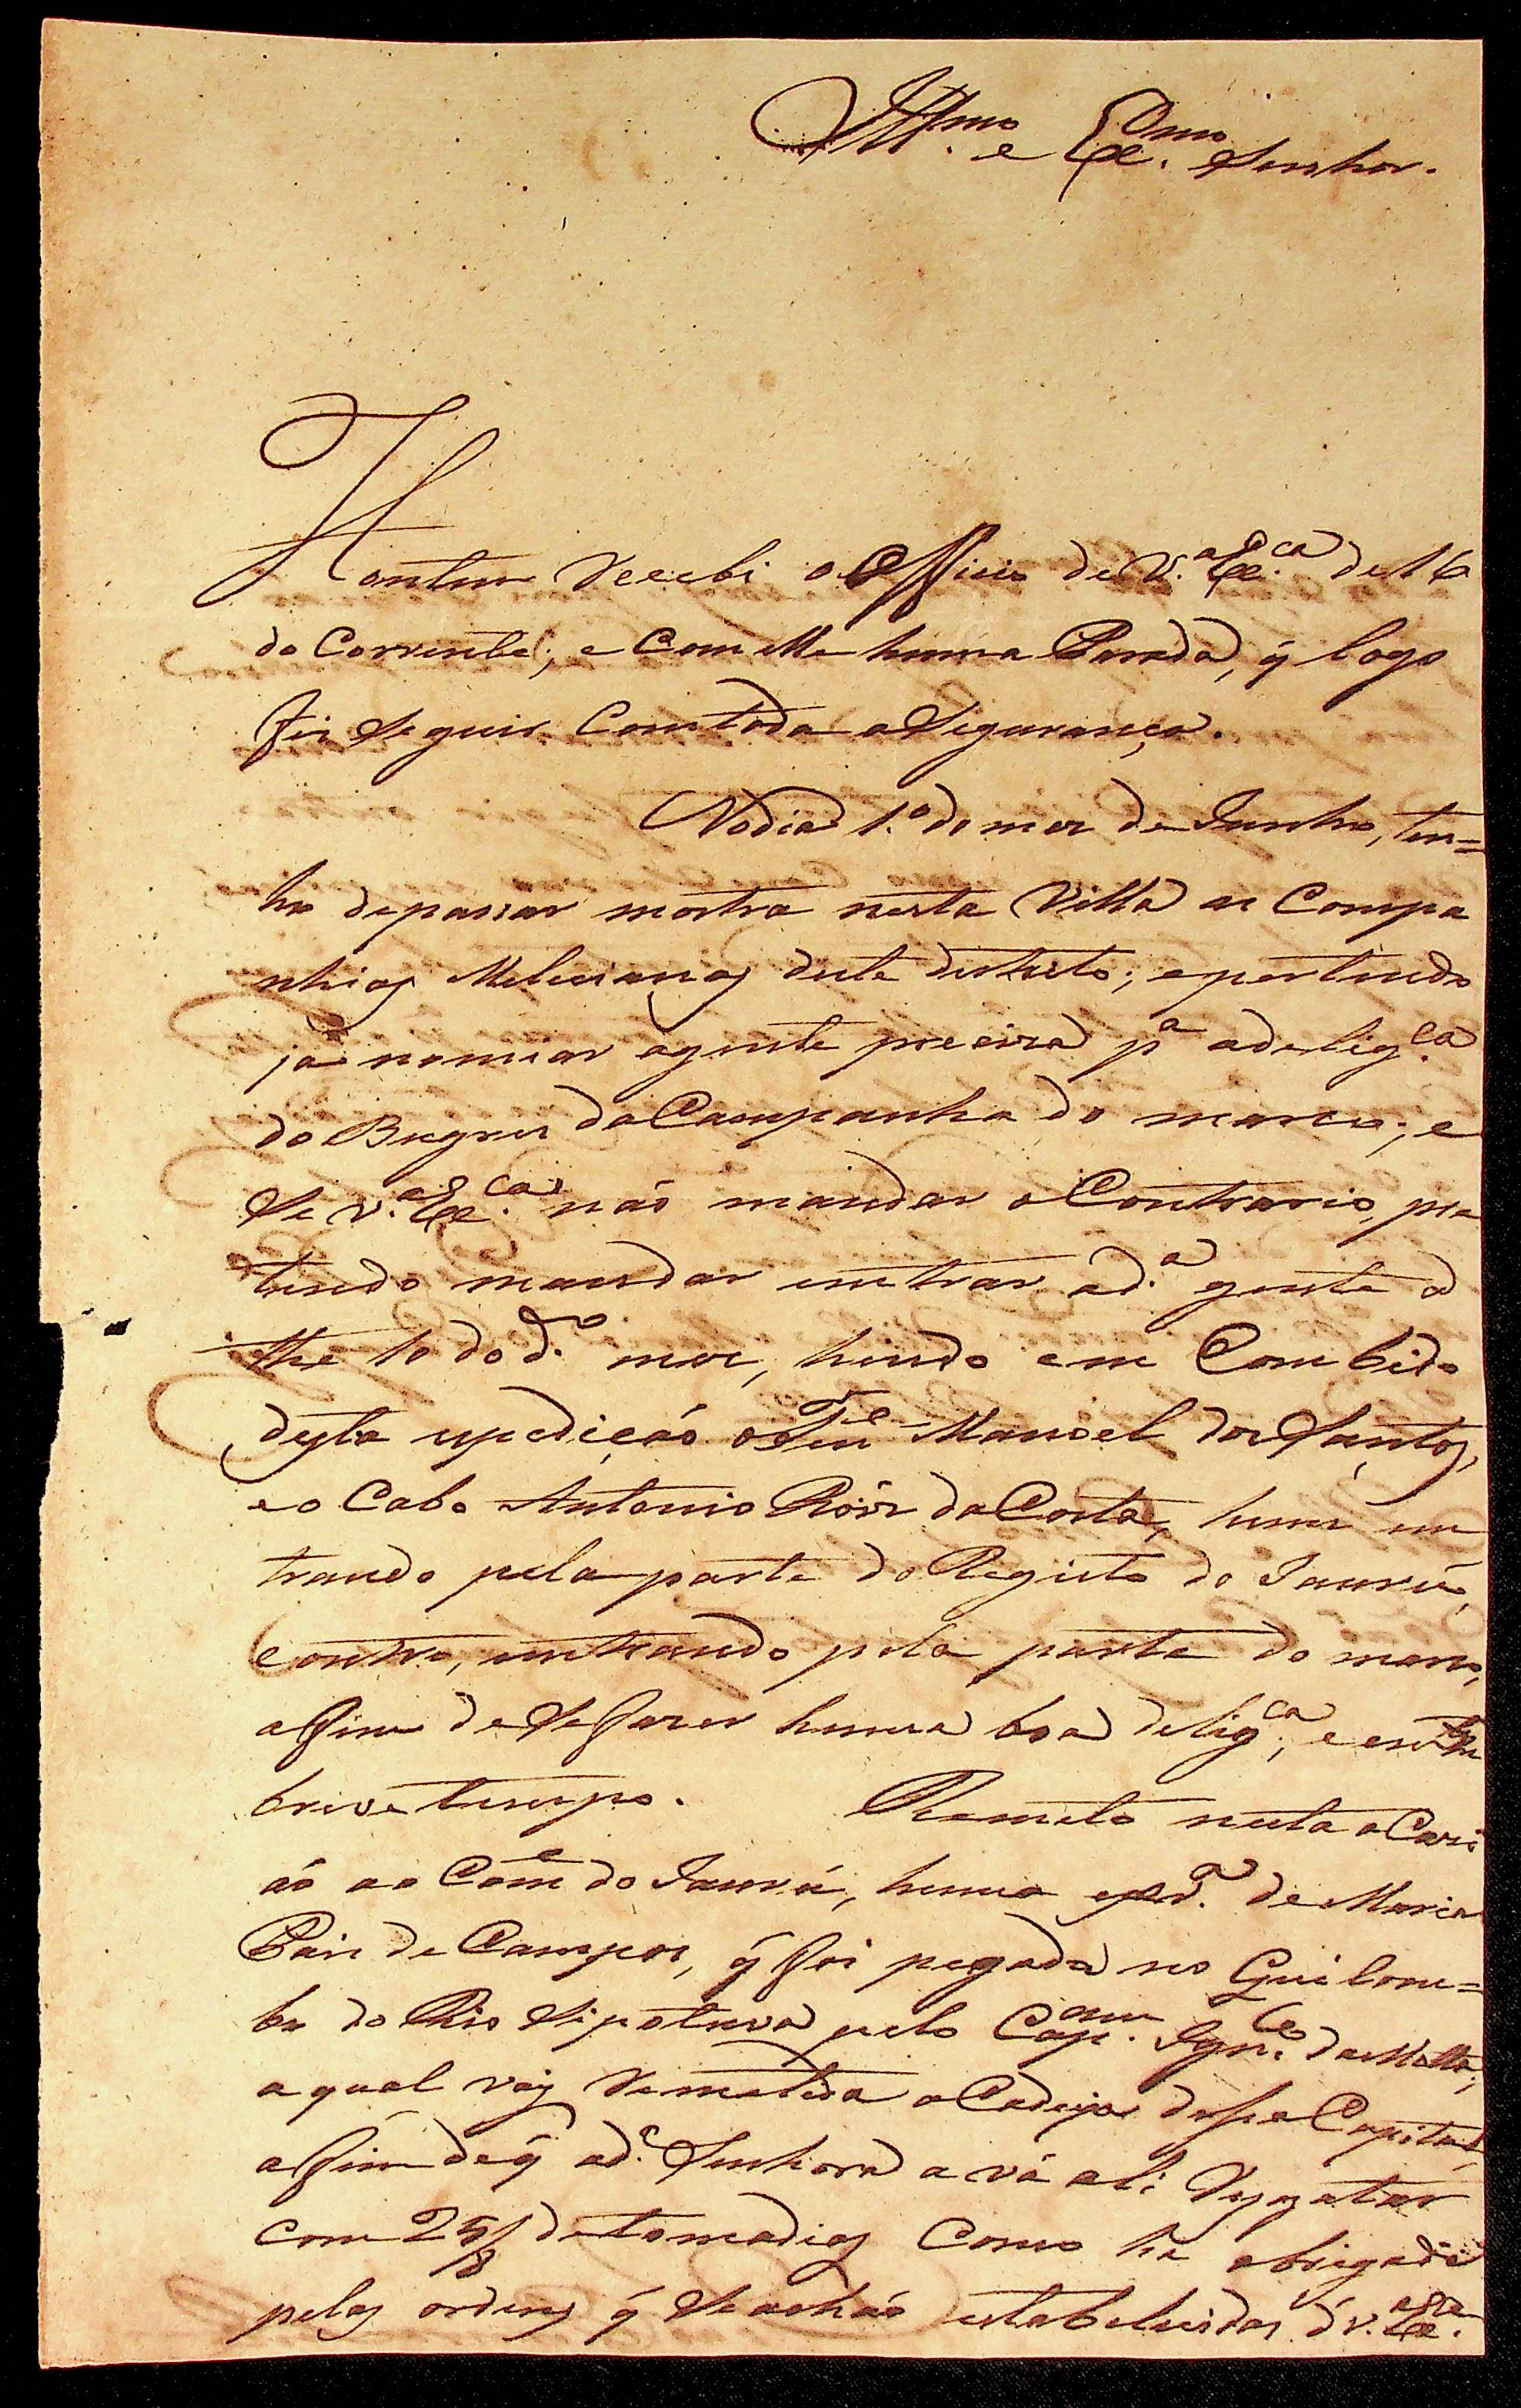 Ill.mo e Ex.mo Senhor.
Hontem Recebi o Officio de V.a Ex.ca de 16
do Corrente; e Com elle huma Parada, q̃ logo
fiz Seguir Com toda a Segurança.
No dia 1.o do mez de Junho, ten=
ho de passar mostra nesta Villa as Compa
nhias Melicianas deste destrito; e pertendo
já nomiar a gente preciza p.a a delig.ca
do Bugres da Campanha do marco; e
Se V.a Ex.ca não mandar o Contrario, pre
tendo mandar emtrar a d.a gente a
the 10 do d.o mez, hindo em Com bido
desta expedição o Ten.e Manoel dos Santos,
e o Cabo Antonio Róiz da Costa, hum em
trando pela parte do Registo do Jaurú,
e outro, emtrando pela parte do marco,
afim de Se fazer huma boa delig.ca, e em
breve tempo. Remeto nesta o Cazi
ão ao Com.e do Jaurú, huma escr.a de Maria
Pais de Campos, q̃ foi pegada no Guilom=
bo do Rio Sipotuva pelo Cap.am Ign.co da Motta;
a qual vai Remetida a Cadeya dessa Capital,
afim de q̃ a d.a Senhora a vá ali Resgatar
com 25/8 de tomadias Como he obrigada
pelas ordens q̃ Se achão estabelecidas d V.a Ex.ca